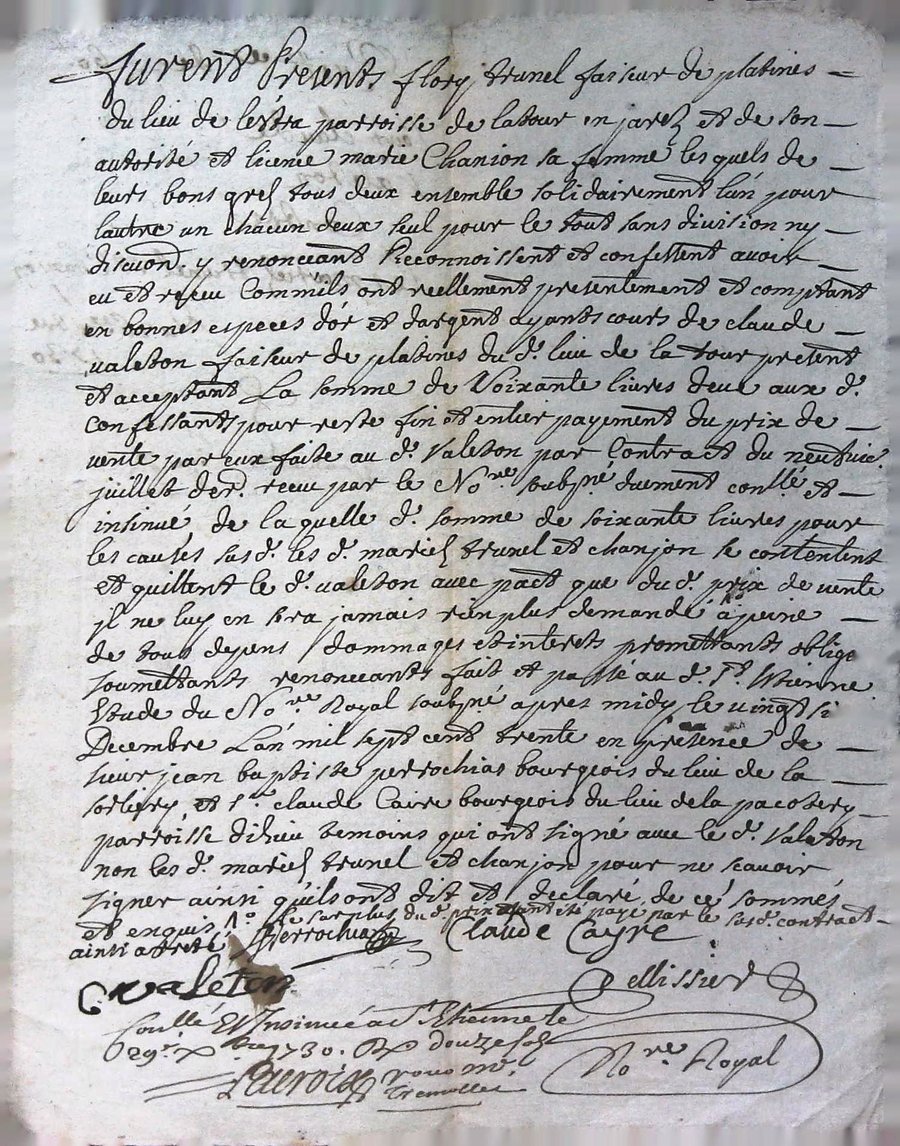 furent Presents flory trunel faiseur de platines
du lieu de lestra parroisse de latour en jarez et de son
autorité et licence marie Chanion sa femme lesquels de
leurs bons grez tous deux ensemble solidairement lun pour
lautre un chacun deux seul pour le tout sans division ny
discuon y renonceant Reconnoissent et confessent avoir
eu et receu Commils ont reellement presentement et comptant
en bonnes especes dor et dargent ayants cours de claude
valeton faiseur de platines du d. lieu de la tour present
et acceptant La somme de Soixante livres deue aux d.
confessants pour reste fin et entier payement du prix de
vente par eux faite au d. Valeton par Contract du
juillet der. receu par le No.re soubz.né duement conllé et
insinué de la quelle d. somme de soixante livres pour
les causes susd. les d. mariez trunel et chanjon se contentent
et quittent le d. valeton avec pact que du d. prix de vente
jl ne luy en sera jamais rien plus demandé a peine
de tous depens dommages et interets promettants oblige
soumettants renonceants fait et passé au d. St. Etienne
Etude du No.re Royal soubzné apres midy le vingt si
Decembre Lan mil sept cent trente en presence de
sieur jean baptiste perrochias bourgeois du lieu de la
et s.r claude Caire bourgeois du lieu dela pacotery
parroisse temoins qui ont signé avec le d. Valeton
non les d. mariez trunel et chanjon pour ne scavoir
signer ainsi quils ont dit et declaré de ce sommés
et enquis 1.o le surplus du d. prix ayant été payé par le susd. contract
ainsi arreté Perrochias Claude Cayre
valeton Pellissier
Conllé Et Insinué a St Etienne le
29e Xbre 1730. Rx douze sols
No.re Royal